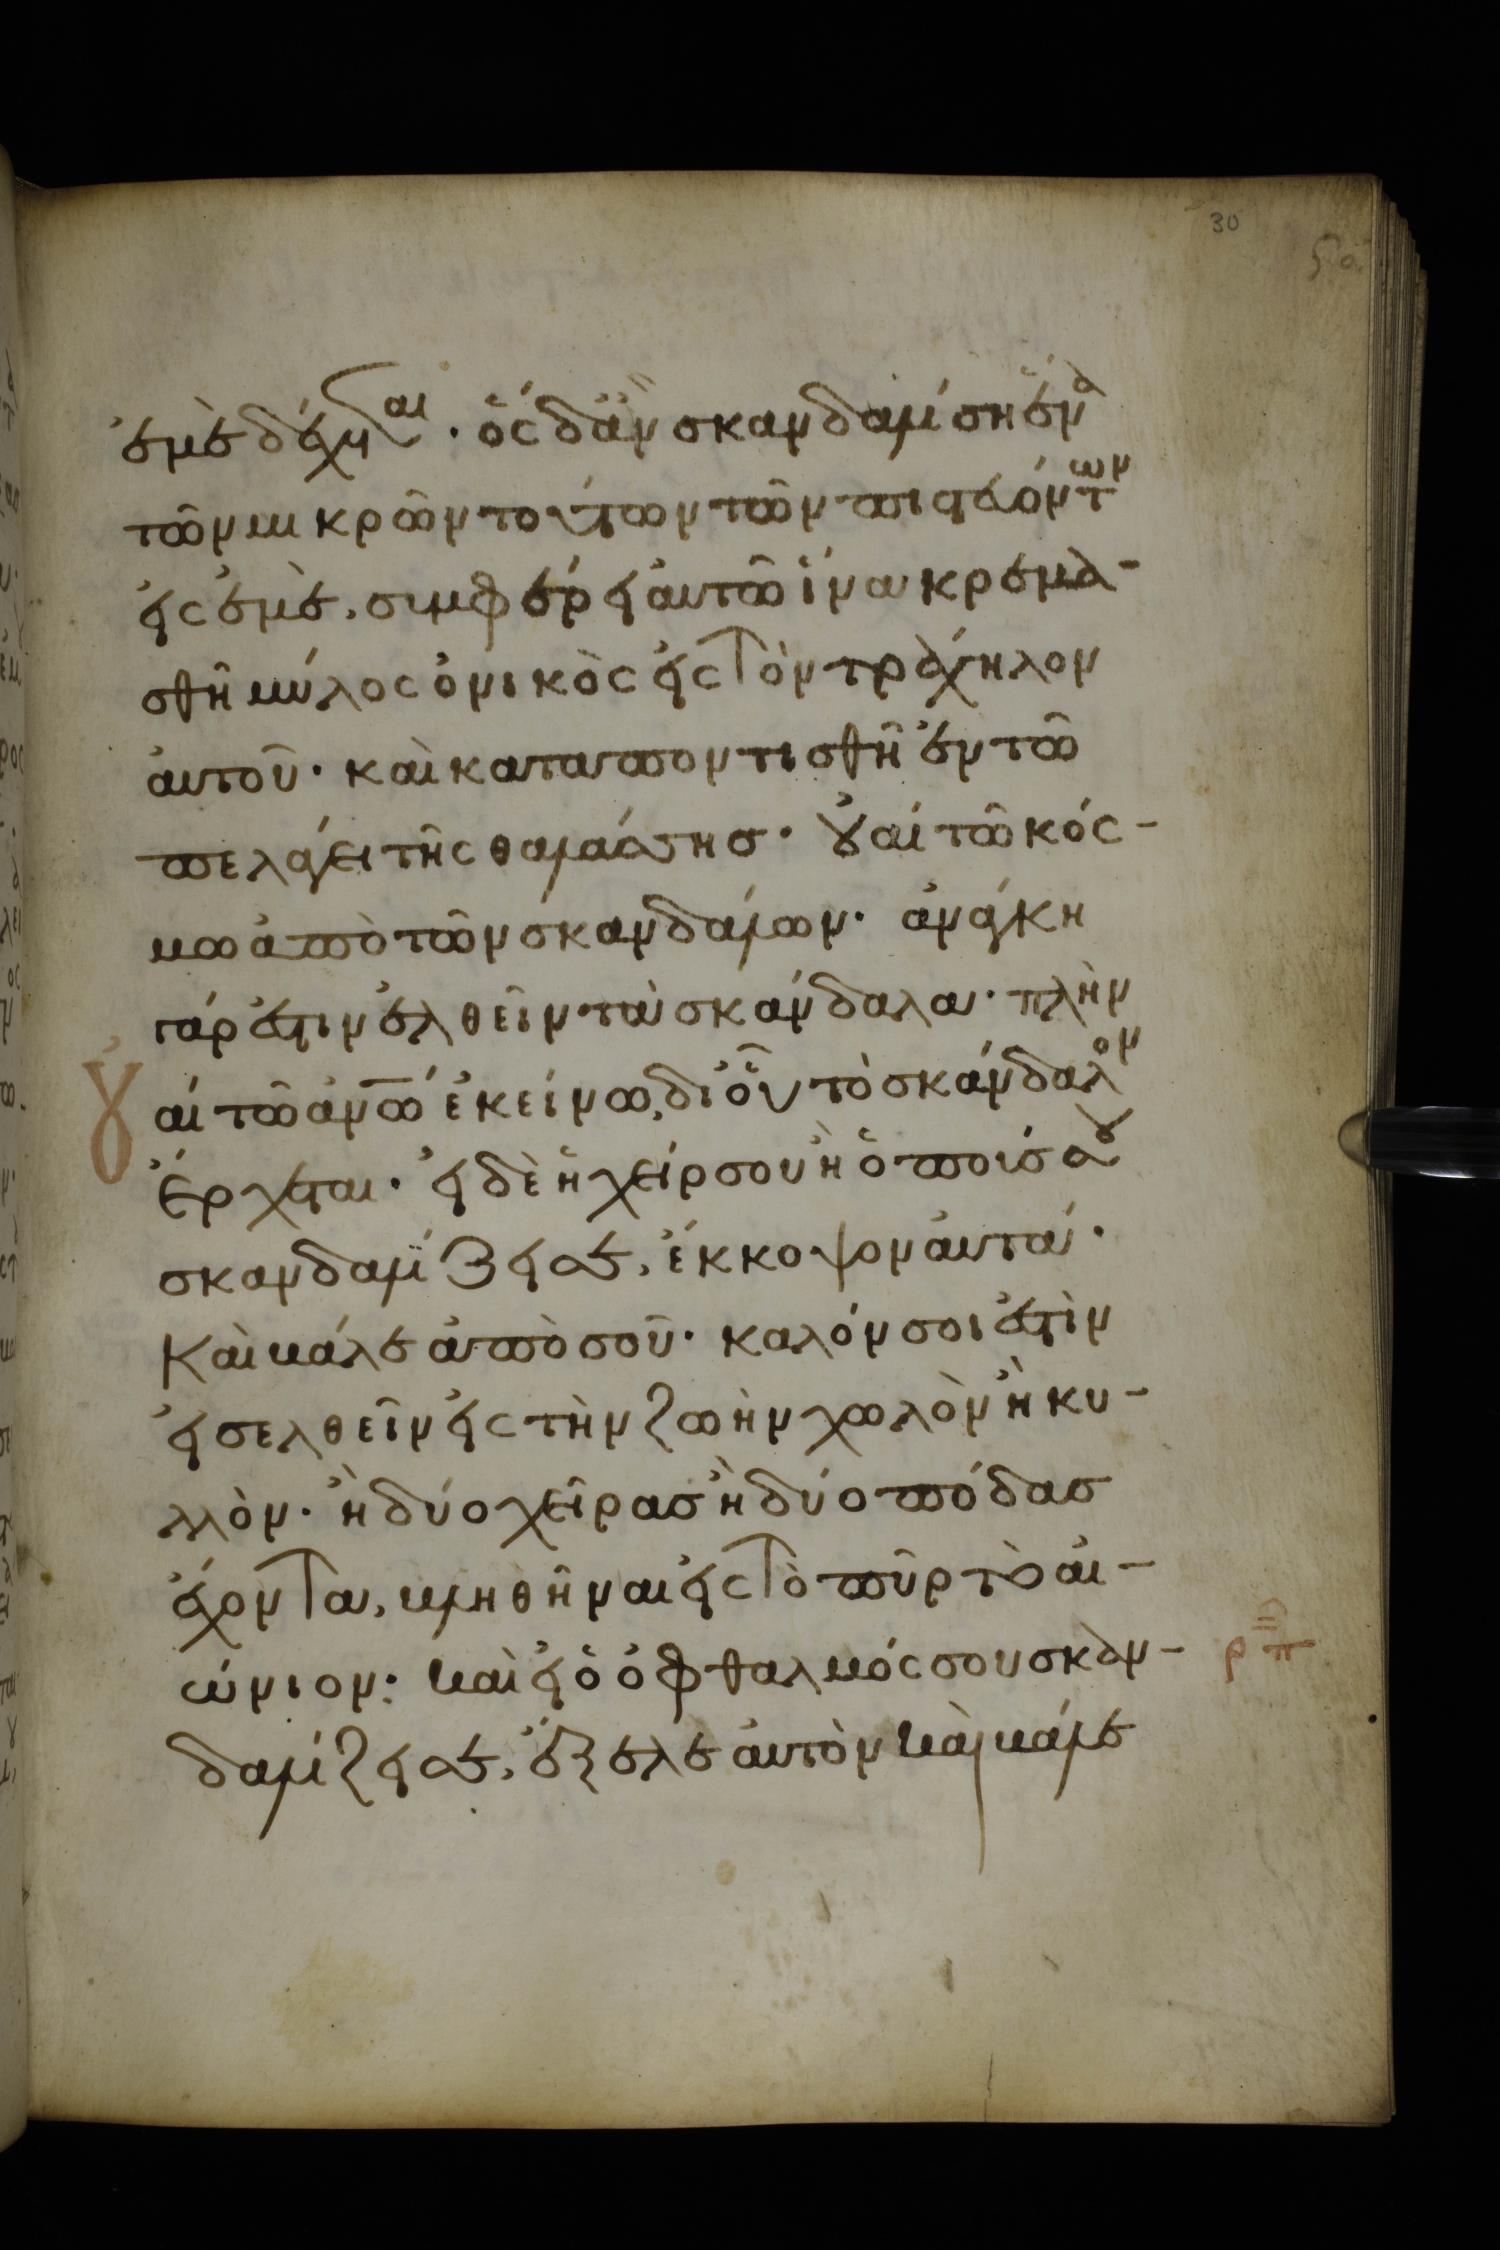 30
ἐμὲ δέχεται· ὃς δ' ἂν σκανδαλίση ἕνα
τῶν μικρῶν τούτων τῶν πιστευόντων
εἰς ἐμὲ, συμφέρει αὐτῶ ἵνα κρεμα-
σθῆ μύλος ὀνικὸς εἰς τὸν τράχηλον
αὐτοῦ· καὶ καταποντισθῆ ἐν τῶ
πελάγει τῆς θαλάσσης· οὐαί τῶ κόσ-
μω ἀπὸ τῶν σκανδάλων· ἀνάγκη
γάρ ἐστιν ἐλθεῖν τὰ σκάνδαλα· πλὴν
οὐαί τῶ ἀνω ἐκείνω, δι οὗ τὸ σκάνδαλον
ἔρχεται· εἰ δὲ ἡ χείρ σου ἢ ὁ ποῦς σου
σκανδαλίζει σε, ἔκκοψον αὐτά·
καὶ βάλε ἀπὸ σοῦ· καλόν σοι ἐστὶν
εἰσελθεῖν εἰς τὴν ζωὴν χωλὸν ἢ κυ-
λλὸν· ἢ δύο χεῖρας ἢ δύο πόδας
ἔχοντα, βληθῆναι εἰς τὸ πῦρ τὸ αἰ-
ώνιον: καὶ εἰ ὁ ὀφθαλμός σου σκαν-
δαλίζει σε, ἔξελε αὐτὸν καὶ βάλε